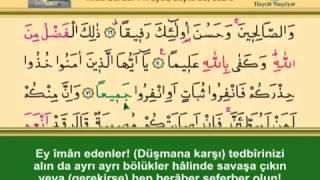 Hayrât Neşriyat
وَالصَّالِحِينَ ۚ وَحَسُنَ أُولَٰئِكَ رَفِيقًا ﴿٦٩﴾ ذَٰلِكَ الْفَضْلُ مِنَ
اللَّهِ ۚ وَكَفَىٰ بِاللَّهِ عَلِيمًا ﴿٧٠﴾ يَا أَيُّهَا الَّذِينَ آمَنُوا خُذُوا
حِذْرَكُمْ فَانْفِرُوا ثُبَاتٍ أَوِ انْفِرُوا جَمِيعًا ﴿٧١﴾ وَإِنَّ مِنْكُمْ
لَمَنْ لَيُبَطِّئَنَّ ۚ فَإِنْ أَصَابَتْكُمْ مُصِيبَةٌ قَالَ قَدْ أَنْعَمَ
Ey îmân edenler! (Düşmana karşı) tedbîrinizi
alın da ayrı ayrı bölükler hâlinde savaşa çıkın
veya (gerekirse) hep berâber seferber olun!